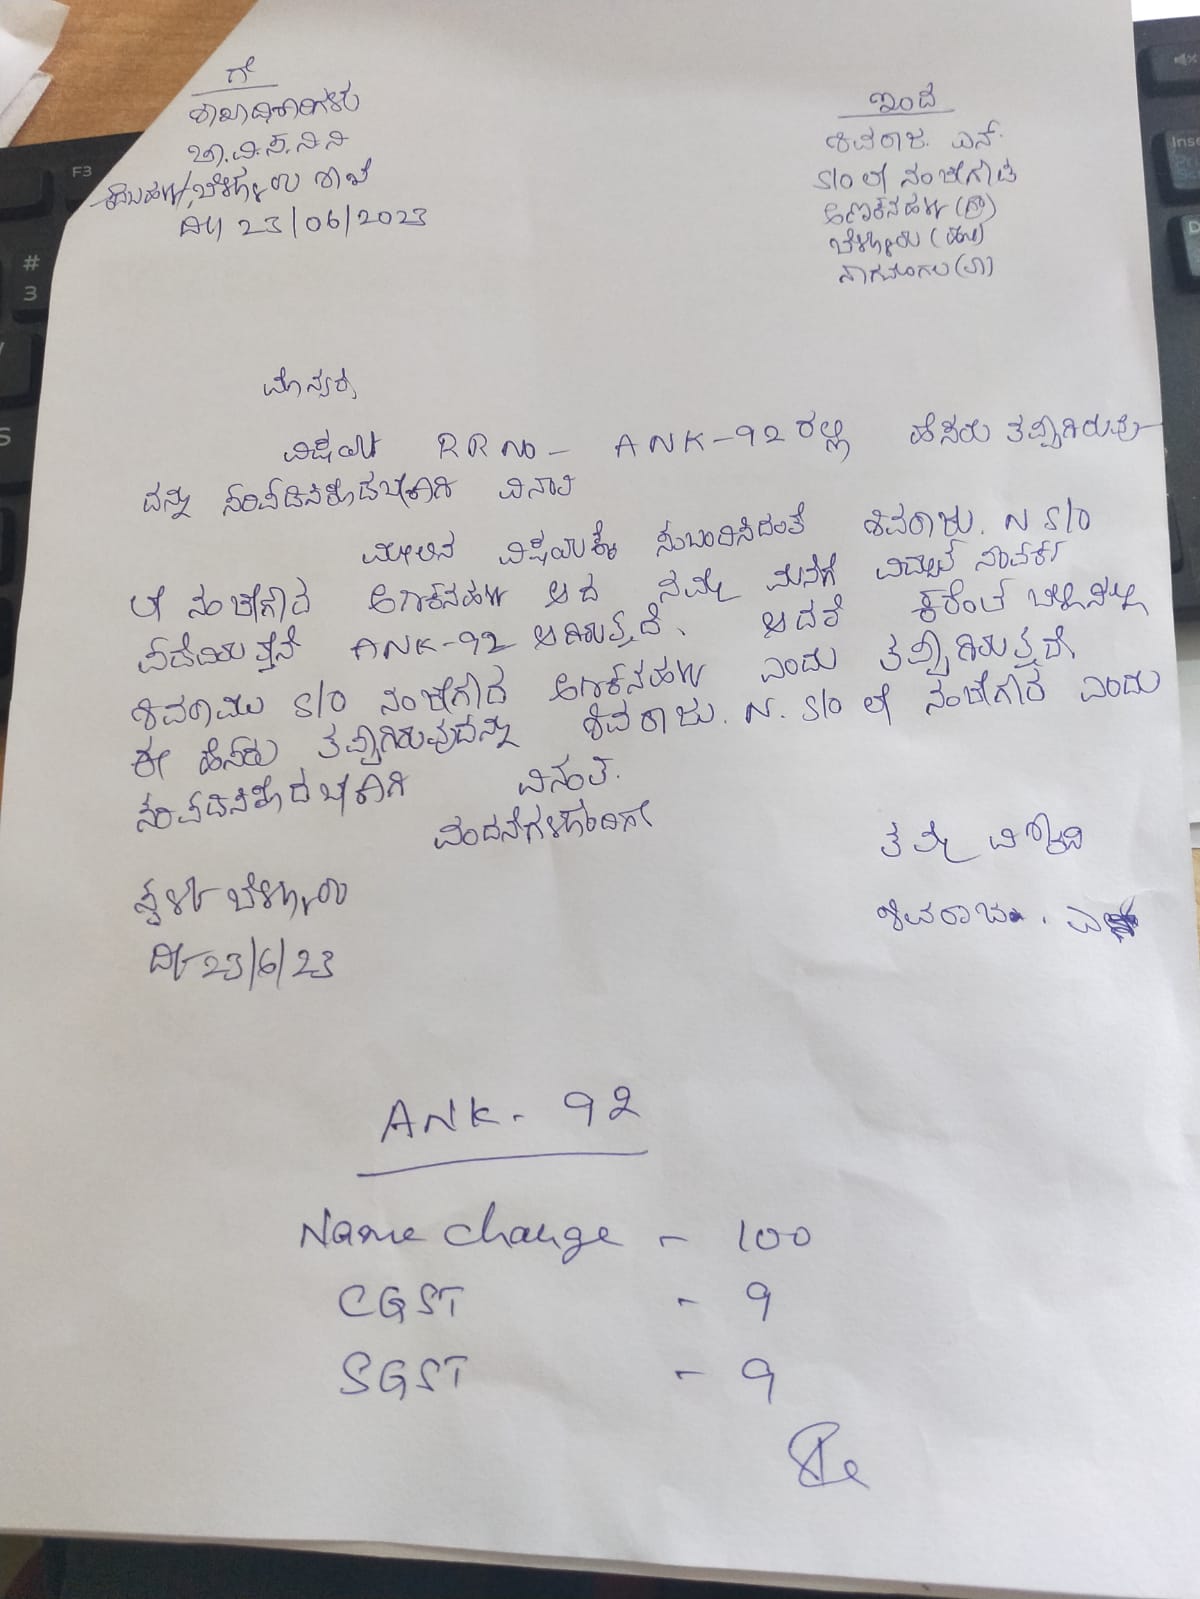 ಗೆ
ಶಾಖಾಧಿಕಾರಿಗಳು
ಚಾ.ವಿ.ಸ.ನಿ.ನಿ
ಬೆಳ್ಳೂರು ಶಾಖೆ
ದಿ// 23/06/2023
ಇಂದ
ಶಿವರಾಜು. ಎನ್.
S/O ಲೇ ನಂಜೇಗೌಡ
ಅಣಕನಹಳ್ಳಿ (ಗ್ರಾ)
ಬೆಳ್ಳೂರು (ಹೋ)
ನಾಗಮಂಗಲ (ತಾ)
ಮಾನ್ಯರೇ
ವಿಷಯ RR NO - ANK-92 ರಲ್ಲಿ ಹೆಸರು ತಪ್ಪಾಗಿರುವು
ದನ್ನು ಸರಿಪಡಿಸಿಕೊಡಬೇಕಾಗಿ ವಿನಂತಿ
ಮೇಲಿನ ವಿಷಯಕ್ಕೆ ಸಂಬಂದಿಸಿದಂತೆ ಶಿವರಾಜು. N S/O
ಲೇ ನಂಜೇಗೌಡ ಅಣಕನಹಳ್ಳಿ ಆದ ನಮ್ಮ ಮನೆಗೆ ವಿದ್ಯುತ್ ಸಂಪರ್ಕ
ಪಡೆದಿರುತ್ತೇನೆ ANK-92 ಆಗಿರುತ್ತದೆ. ಆದರೆ ಕರೆಂಟ್ ಬಿಲ್ಲಿನಲ್ಲಿ
ಶಿವರಾಮು S/O ನಂಜೇಗೌಡ ಅಣಕನಹಳ್ಳಿ ಎಂದು ತಪ್ಪಾಗಿರುತ್ತದೆ.
ಈ ಹೆಸರು ತಪ್ಪಾಗಿರುವುದನ್ನು ಶಿವರಾಜು. N. S/O ಲೇ ನಂಜೇಗೌಡ ಎಂದು
ಸರಿಪಡಿಸಿಕೊಡಬೇಕಾಗಿ ವಿನಂತಿ.
ವಂದನೆಗಳೊಂದಿಗೆ
ತಮ್ಮ ವಿಶ್ವಾಸಿ
ಸ್ಥಳ:- ಬೆಳ್ಳೂರು
ಶಿವರಾಜು. ಎನ್
ದಿ:- 23/6/23
ANK - 92
Name change - 100
CGST - 9
SGST - 9